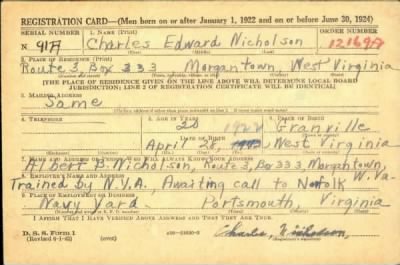 REGISTRATION CARD—(Men born on or after January 1, 1922 and on or before June 30, 1924)
SERIAL NUMBER 1. NAME (Print) ORDER NUMBER
N 917 Charles Edward Nicholson 12169A
2. PLACE OF RESIDENCE (Print)
Route 3, Box 333 Morgantown, West Virginia
[THE PLACE OF RESIDENCE GIVEN ON THE LINE ABOVE WILL DETERMINE LOCAL BOARD
JURISDICTION; LINE 2 OF REGISTRATION CERTIFICATE WILL BE IDENTICAL]
3. MAILING ADDRESS
Same
4. TELEPHONE 5. AGE IN YEARS 6. PLACE OF BIRTH
20 Granville
DATE OF BIRTH
April 28, 1922 West Virginia
7. NAME AND ADDRESS OF PERSON WHO WILL ALWAYS KNOW YOUR ADDRESS
Albert B. Nicholson, Route 3, Box 333, Morgantown, W. Va.
8. EMPLOYER'S NAME AND ADDRESS
Trained by N.Y.A. Awaiting call to Norfolk
9. PLACE OF EMPLOYMENT OR BUSINESS
Navy Yard. Portsmouth, Virginia
I AFFIRM THAT I HAVE VERIFIED ABOVE ANSWERS AND THAT THEY ARE TRUE.
D. S. S. Form 1
(Revised 6-1-42) (over) Charles Nicholson